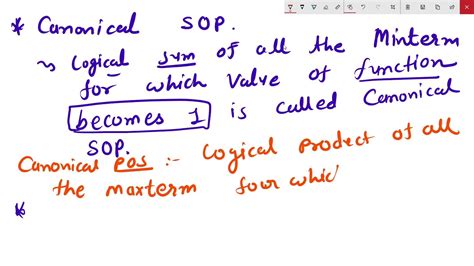 * Canonical SOP.
~ Logical sum of all the Minterm
for which value of function
becomes 1 is called Canonical
SOP.
Canonical POS :- Logical Product of all
the maxterm four whic
*